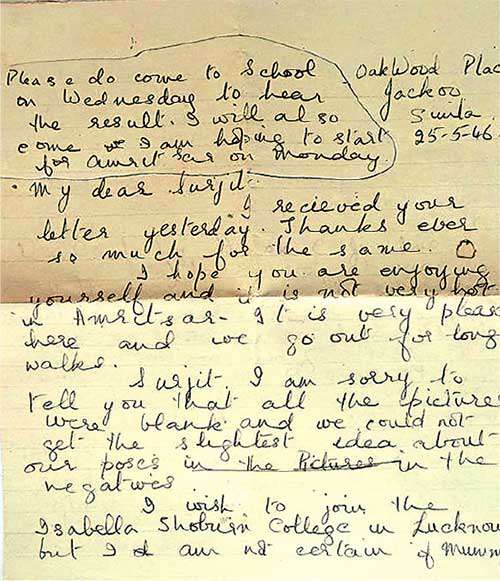 Please do come to School
on Wednesday to hear
the result. I will also
come & I am hoping to start
for Amritsar on Monday.
OakWood Plac
Jackoo
Simla.
25-5-46
My dear Surjit
I recieved your
letter yesterday. Thanks ever
so much for the same.
I hope you are enjoying
yourself and it is not very hot
in Amritsar - It is very pleas
here and we go out for long
walks.
Surjit, I am sorry to
tell you that all the picture
were blank and we could not
get the slightest idea about
our poses in the Pictures in the
negatives
I wish to join the
Isabella Thoburn College in Lucknow
but I am not certain of Mumm